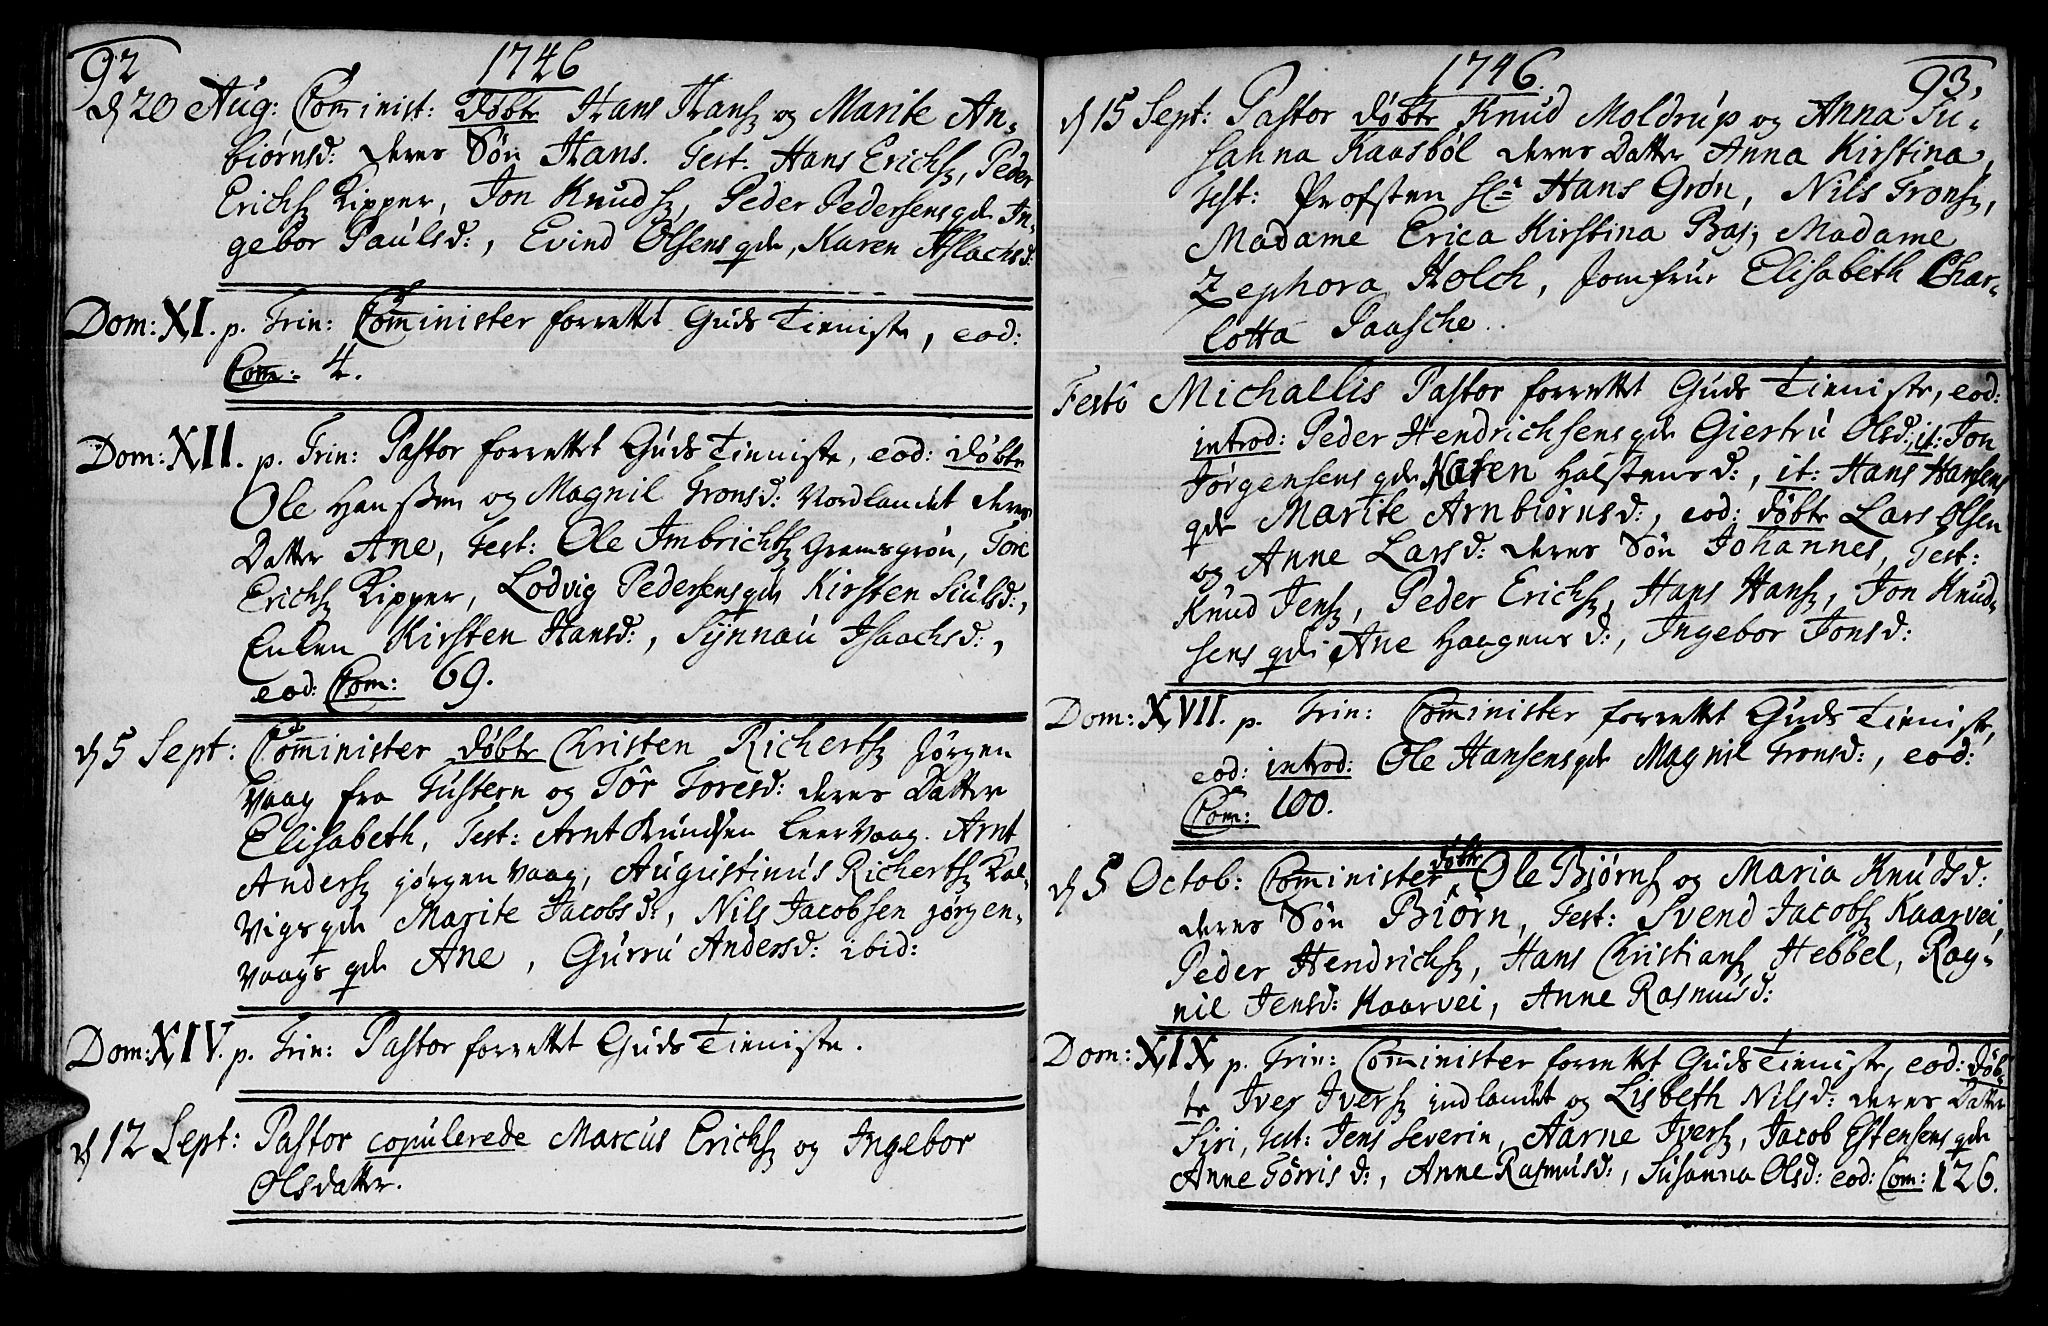 92
1746
d 20 Aug: Cominist: døbte Hans Hans. og Marite An-
biørnsd: deres Søn Hans. Test. Hans Erichs., Peder
Erichs. Kipper, Jon Knuds., Peder Pedersens qde In-
gebor Paulsd:, Evind Olsens qde, Karen Aslachsd:
Dom: XI. p. Trin: Cominister forrettet Guds Tieniste, eod:
Com: 4.
Dom: XII. p. Trin: Pastor forrettet Guds Tieniste, eod: døbte
Ole Hanssen og Magnil Tronsd: Nordlandet deres
Datter Ane, Test: Ole Imbrichts. Gremsgrøn, Tore
Erichs. Kipper, Lodvig Pedersens qde Kirsten Siulsd:,
Enken Kirsten Hansd:, Synnau Isaachsd:,
eod: Com: 69.
d 5 Sept: Cominister døbte Christen Richerts. Jørgen
Vaag fra Tustern og Tor Toresd: deres Datter
Elisabeth, Test: Arnt Knudsen Leervaag. Arnt
Anders. Jørgenvaag, Augustinus Richerts. Kal-
vigs qde Marite Jacobsd:, Nils Jacobsen Jørgen-
vaags qde Ane, Gurru Andersd: ibid:
Dom: XIV. p. Trin: Pastor forrettet Guds Tieniste.
d 12 Sept: Pastor copulerede Marcus Erichs. og Ingebor
Olsdatter.
1746.
93.
d 15 Sept: Pastor døbte Knud Moldrup og Anna Su-
sanna Kaasbøl deres Datter Anna Kirstina,
Test: Profsten Hr Hans Grøn, Nils Trons.,
Madame Erica Kirstina Bas, Madame
Zephora Holch, Jomfrur Elisabeth Char-
lotta Paasche.
Festo Michaelis Pastor forrettet Guds Tieniste, eod:
introd: Peder Hendrichsens qde Giertru Olsd: it: Jon
Jørgensens qde Karen Halstensd:, it: Hans Hansens
qde Marite Arnbiørnsd:, eod: døbte Lars Olsen
og Anne Larsd: deres Søn Johannes, Test:
Knud Jens., Peder Erichs., Hans Hans., Jon Knud-
sens qde Ane Haagensd:, Ingebor Jonsd:
Dom: XVII. p. Trin: Cominister forrettet Guds Tieniste,
eod: introd: Ole Hansens qde Magnil Tronsd:, eod:
Com: 100.
d 5 Octob: Cominister døbte Ole Bjørns. og Maria Knudsd:
deres Søn Biørn, Test: Svend Jacobs. Kaarvei,
Peder Hendrichs., Hans Christians. Hebbel, Rag-
nil Jensd: Kaarvei, Anne Rasmusd:
Dom: XIX p. Trin: Cominister forrettet Guds Tieniste, eod: døb-
te Iver Ivers. indlandet og Lisbeth Nilsd: deres Datter
Siri, Test: Jens Severin, Aarne Ivers., Jacob Estensens qde
Anne Torrisd:, Anne Rasmusd:, Susanna Olsd: eod: Com: 126.